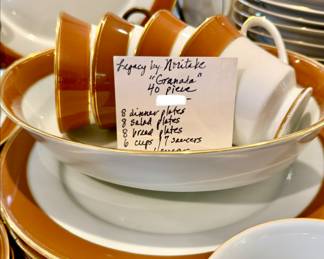 Legacy by Noritake
"Granada"
40 piece
8 dinner plates
8 salad plates
8 bread plates
6 cups / 7 saucers